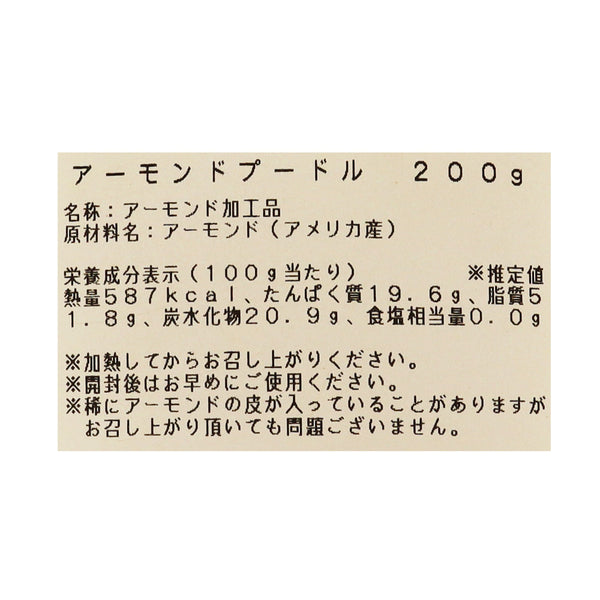 アーモンドプードル　２００ｇ
名称：アーモンド加工品
原材料名：アーモンド（アメリカ産）
栄養成分表示（１００ｇ当たり）　※推定値
熱量５８７ｋｃａｌ、たんぱく質１９．６ｇ、脂質５
１．８ｇ、炭水化物２０．９ｇ、食塩相当量０．０ｇ
※加熱してからお召し上がりください。
※開封後はお早めにご使用ください。
※稀にアーモンドの皮が入っていることがありますが
お召し上がり頂いても問題ございません。